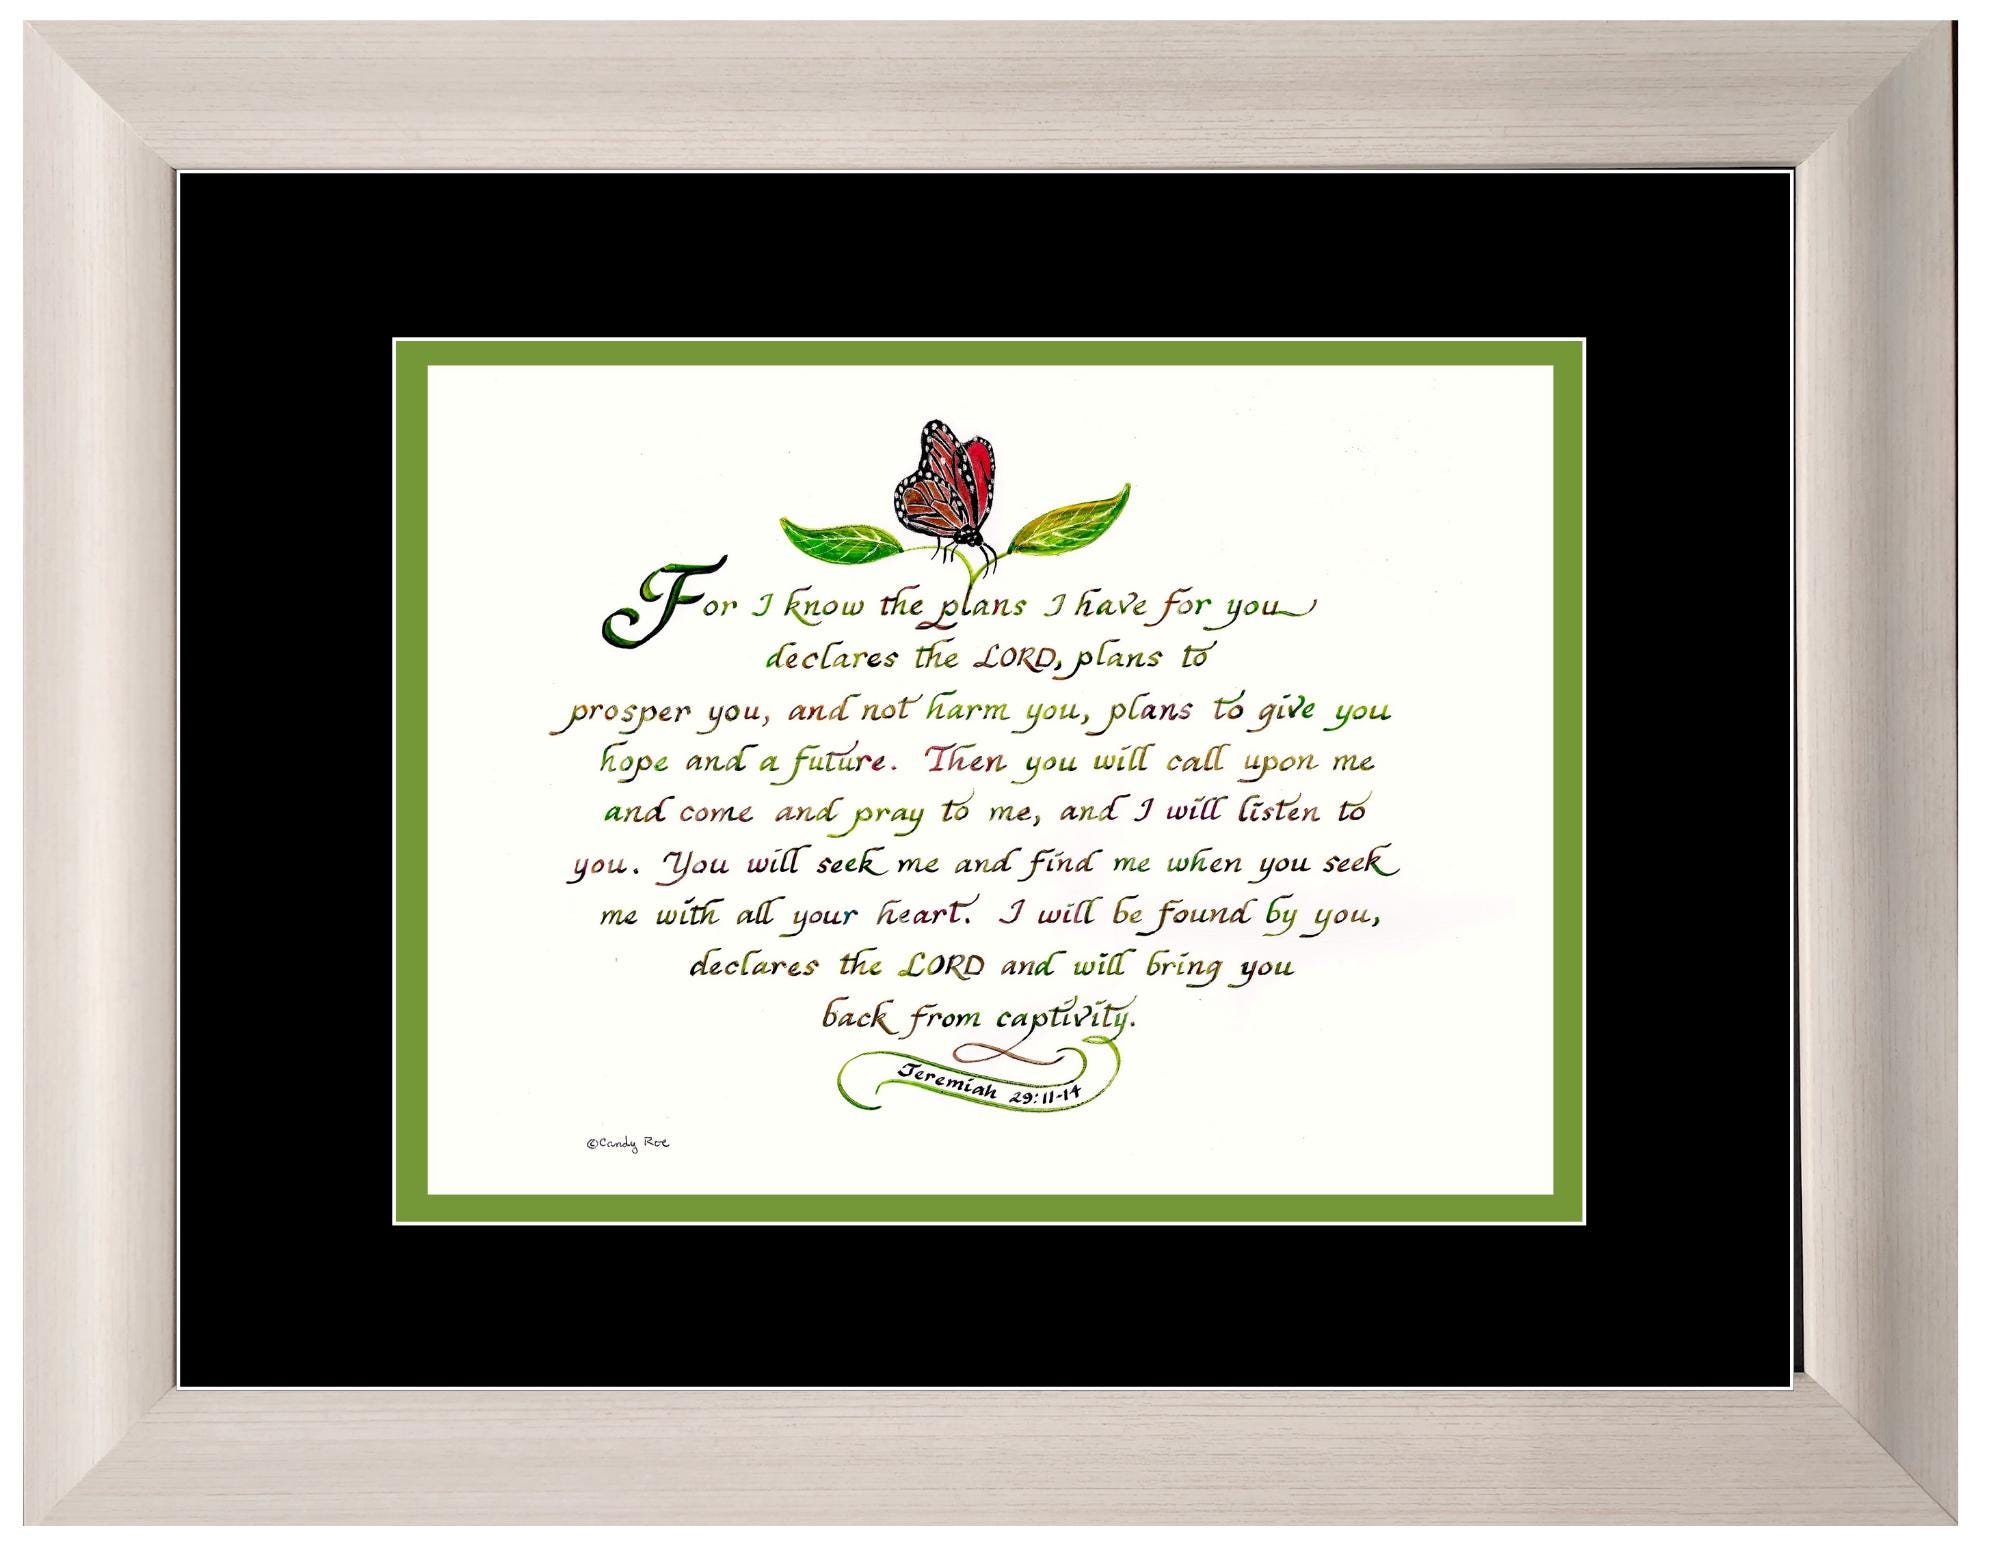 For I know the plans I have for you
declares the LORD, plans to
prosper you, and not harm you, plans to give you
hope and a future. Then you will call upon me
and come and pray to me, and I will listen to
you. You will seek me and find me when you seek
me with all your heart. I will be found by you,
declares the LORD and will bring you
back from captivity.
Jeremiah 29:11-14
©Candy Roe